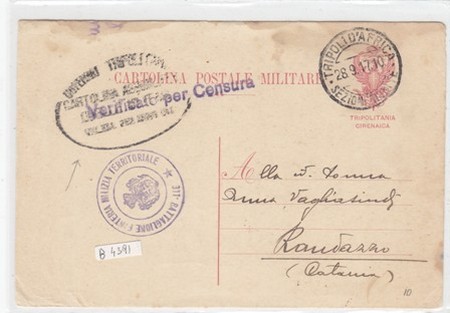 TRIPOLI D'AFRICA
28.9.17.10
CARTOLINA POSTALE MILITARE
Verificato per Censura
CARTOLINA
TRIPOLITANIA
CIRENAICA
311° BATTAGLIONE FANTERIA MILIZIA TERRITORIALE
Alla
Anna Vagliasindi
Randazzo
(Catania)
B 4391
10